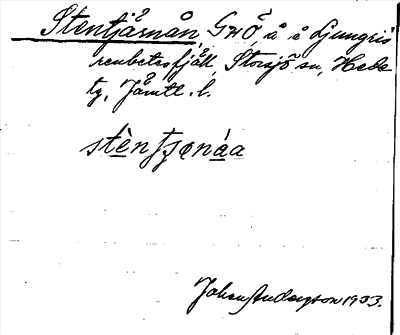 Stentjårnån GNÖ, å i Ljungris
renbetesfjäll, Storsjö sn, Hede
tg, Jämtl. l.
stèntjɷnáa
Johan Anderson 1933.